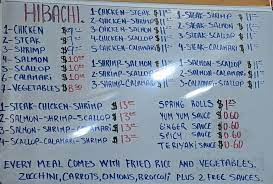 HIBACHI.
1-CHICKEN $9
2-STEAK
3-SHRIMP $9
4-SALMON $10.00
5-SCALLOP $10.00
6-CALAMARI $10.00
7-VEGETABLES $8.00
1-CHICKEN-STEAK $11
2-CHICKEN-SHRIMP $11
3-CHICKEN-SALMON $11
4-CHICKEN-SCALLOP $11
5-CHICKEN-CALAMARI $11
1-STEAK-SHRIMP $11
2-STEAK-SALMON $11
3-STEAK-SCALLOP $11
4-STEAK-CALAMARI $11
1-SHRIMP-SALMON $11
2-SHRIMP-SCALLOP $11
3-SHRIMP-CALAMARI $11
1-SALMON-SCALLOP $11
2-SALMON-CALAMARI
3-SCALLOP-CALAMARI
1-STEAK-CHICKEN-SHRIMP $13
2-SALMON-SHRIMP-SCALLOP $13
3-SALMON-SHRIMP-CALAMARI $13
4-SCALLOP-SHRIMP-CALAMARI $13
SPRING ROLLS
YUM YUM SAUCE $0.60
GINGER SAUCE $0.60
SPICY SAUCE $0.60
TERIYAKI SAUCE $0.60
EVERY MEAL COMES WITH FRIED RICE AND VEGETABLES.
ZUCCHINI, CARROTS, ONIONS, BROCOLI PLUS 2 FREE SAUCES.